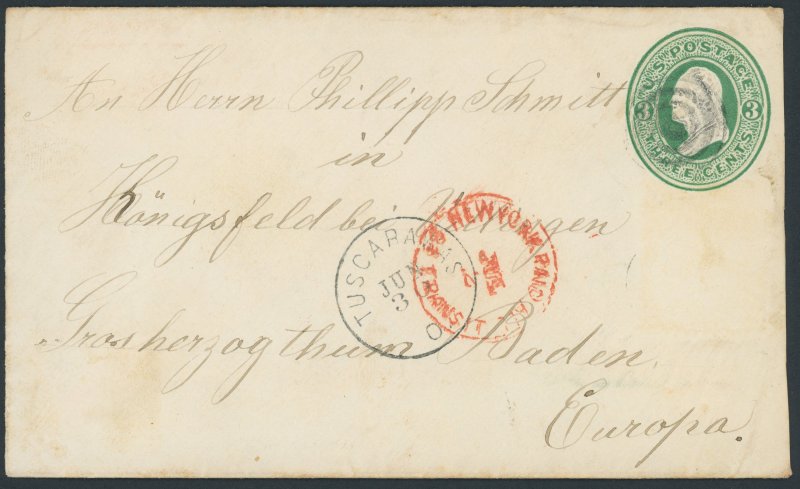 U.S. POSTAGE
3 3
THREE CENTS
An Herrn Phillipp Schmitt
in
Königsfeld bei
NEW YORK PAID ALL
JUN
TRANSIT
TUSCARAWAS
JUN
3
O
Grosherzogthum Baden.
Europa.